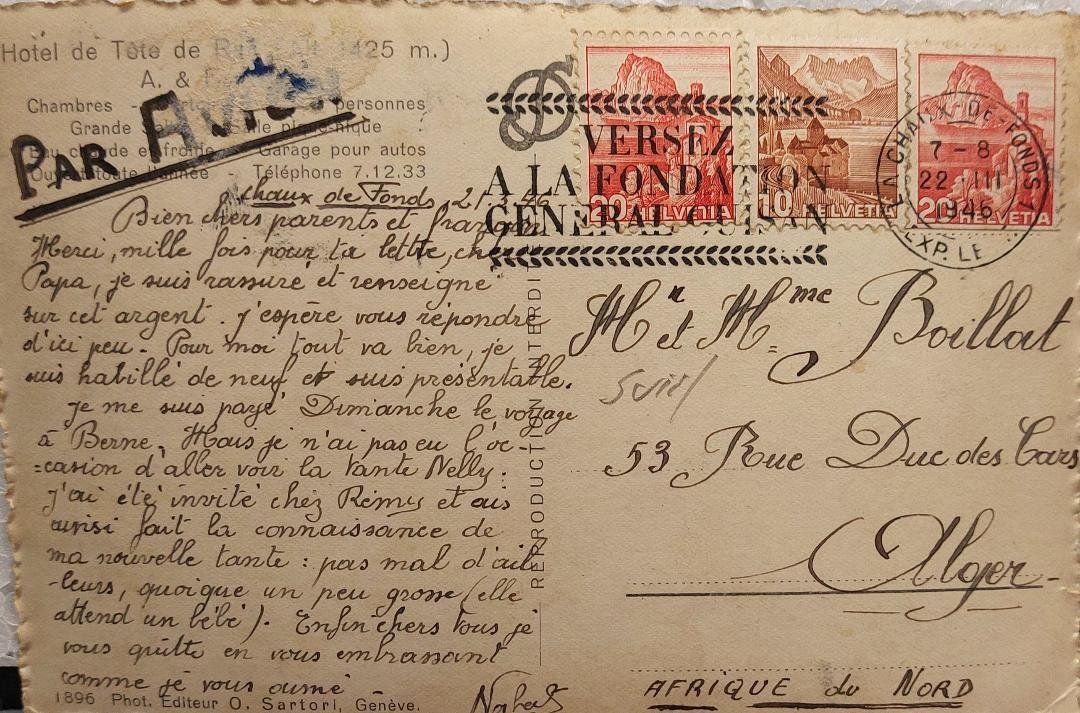 Hotel de Tête de 1425 m.)
A. &
Chambres - personnes
Grande Salle pique-nique
Eau chaude et froide - Garage pour autos
Ouvert toute l'année - Téléphone 7.12.33
PAR AVION
VERSEZ
A LA FONDATION
GENERAL GUISAN
20 HELVETIA
10 HELVETIA
20 HELVETIA
LA CHAUX-DE-FONDS 1
7-8
22 III
1946
EXP. LE
Chaux de Fonds, 21.3.46
Bien chers parents et
Merci, mille fois pour ta lettre, cher
Papa, je suis rassuré et renseigné
sur cet argent. J'espère vous répondre
d'ici peu. Pour moi tout va bien, je
suis habillé de neuf et suis présentable.
Je me suis payé Dimanche le voyage
à Berne. Mais je n'ai pas eu l'oc-
=casion d'aller voir la tante Nelly.
J'ai été invité chez Rémy et ais
aussi fait la connaissance de
ma nouvelle tante : pas mal d'ail-
-leurs, quoique un peu grosse (elle
attend un bébé). Enfin chers tous je
vous quitte en vous embrassant
comme je vous aime
1896 Phot. Editeur O. Sartori, Genève.
REPRODUCTION INTERDITE
Mr et Mme Boillat
53 Rue Duc des Cars
Alger
AFRIQUE du NORD